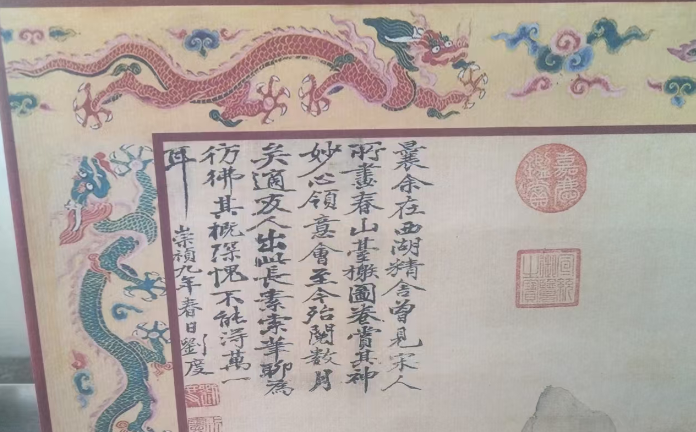 曩余在西湖精舍曾見宋人
所畫春山臺榭圖卷賞其神
妙心領意會至今殆閱數月
矣適友人出此長素索筆聊為
彷彿其概深愧不能得萬一
耳
崇禎九年春日劉度
嘉慶鑑賞